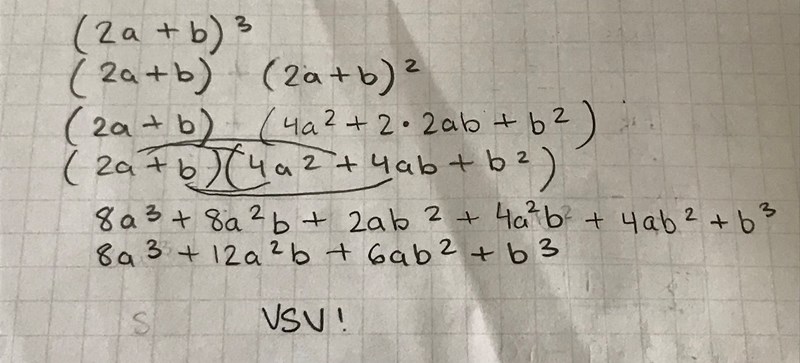 (2a + b)³
(2a+b) (2a+b)²
(2a + b) (4a² + 2·2ab + b²)
(2a+b)(4a² + 4ab + b²)
8a³ + 8a²b + 2ab² + 4a²b + 4ab² + b³
8a³ + 12a²b + 6ab² + b³
S VSV!